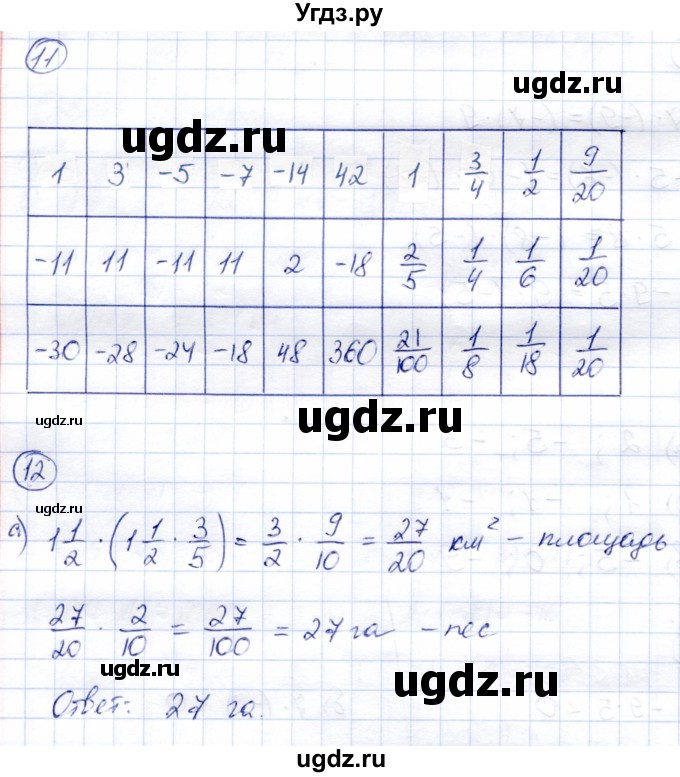 Угдз.ру
11
ugdz.ru
ugdz.ru
1 3 -5 -7 -14 42 1 3/4 1/2 9/20
-11 11 -11 11 2 -18 2/5 1/4 1/6 1/20
-30 -28 -24 -18 48 360 21/100 1/8 1/18 1/20
ugdz.ru
ugdz.ru
ugdz.ru
12
ugdz.ru
а) 1 1/2 · (1 1/2 · 3/5) = 3/2 · 9/10 = 27/20 км² – площадь
27/20 · 2/10 = 27/100 = 27 га – лес
ugdz.ru
ugdz.ru
Ответ: 27 га.
ugdz.ru